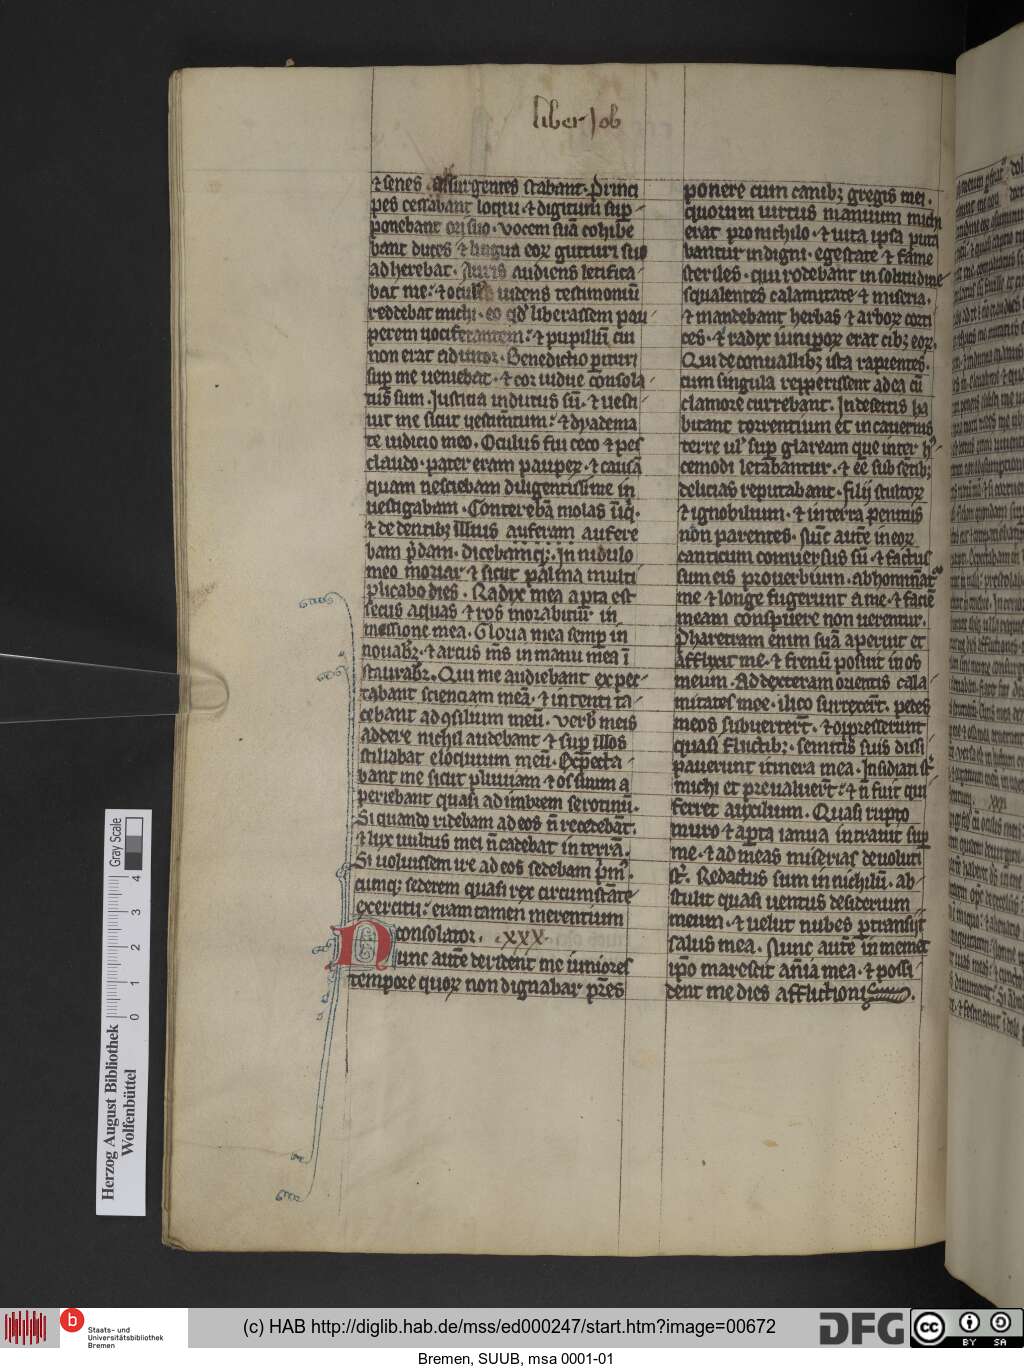 liber Job
⁊ senes assurgentes stabant. Princi
pes cessabant loqui ⁊ digitum sup̱
ponebant ori suo. vocem suā cohibe
bant duces ⁊ lingua eoꝝ gutturi suo
adherebat. Auris audiens letifica
bat me: ⁊ oculus uidens testimoniū
reddebat michi. eo qd̓ liberassem pau
perem uociferantem: ⁊ pupillū cui
non erat adiutor. Benedictio perituri
sup̱ me ueniebat. ⁊ cor uidue consola
tus sum. Justicia indutus sū. ⁊ uesti
uit me sicut uestim̄tum: ⁊ dyadema
te iudicio meo. Oculus fui ceco ⁊ pes
claudo. pater eram pauperꝝ. ⁊ causā
quam nesciebam diligentissime in
uestigabam. Conterebā molas iīqͥ.
⁊ de dentibꝫ illius auferam aufere
bam p̄dam. dicebamqꝫ. In nidulo
meo moriar ⁊ sicut palma multi
plicabo dies. Radix mea apta est
secus aquas ⁊ ros morabitur in
messione mea. Gloria mea semp̱ in
nouabr̄. ⁊ arcus m̄s in manu mea ī
staurabr̄. Qui me audiebant expec
tabant sentenciam meā. ⁊ intenti ta
cebant ad ꝯsilium meū. verb̓ meis
addere nichil audebant ⁊ sup̱ illos
stillabat eloquium meū. Expecta
bant me sicut pluuiam ⁊ os suum a
periebant quasi ad imbrem serotinū.
Si quando ridebam ad eos n̄ credebāt.
⁊ lux uultus mei n̄ cadebat in terra.
Si uoluissem ire ad eos sedebam p̄mꝰ.
cumqꝫ sederem quasi rex circumstāte
exercitu: eram tamen merentium
consolator. XXX.
Nunc autē derident me iuniores
tempore quoꝝ non dignabar p̄res
ponere cum canibꝫ gregis mei.
quorum uirtus manuum michi
erat pro nichilo. ⁊ uita ipsa puta
bantur indigni. egestate ⁊ fame
steriles. qui rodebant in solitudine
squalentes calamitate ⁊ miseria.
⁊ mandebant herbas ⁊ arboꝝ corti
ces. ⁊ radix iuniꝑoꝝ erat cibꝫ eoꝝ.
Qui de conuallibꝫ ista rapientes.
cum singula repperissent ad ea cū
clamore currebant. In desertis ha
bitant torrentium et in cauernis
terre ul̓ sup̱ glaream que inter hꝰ
cemodi letabantur. ⁊ eē sub sētibꝫ
delicias reputabant. filij stultoꝝ
⁊ ignobilium. ⁊ in terra penitus
non parentes. Nūc autē in eoꝝ
canticum conuersus sū. ⁊ factus
sum eis prouerbium. abhominātʳ
me ⁊ longe fugerunt a me. ⁊ faciē
meam conspuere non uerentur.
Pharetram enim suā aperuit et
afflixit me. ⁊ frenū posuit in os
meum. Ad dexteram orientis cala
mitates mee. ilico surrexer̄t. pedes
meos subuerter̄t. ⁊ oppresserunt
quasi fluctibꝫ. semitis suis dissi
pauerunt itinera mea. Insidiati st̄
michi et preualuer̄t: ⁊ n̄ fuit qui
ferret auxilium. Quasi rupto
muro ⁊ aꝑta ianua intrauit sup̱
me. ⁊ ad meas miserias deuoluti
st̄. Redactus sum in nichilū. ab
stulit quasi uentus desiderium
meum. ⁊ uelut nubes ꝑtransijt
salus mea. Nunc autē in memet
ip̄o marescit aīa mea. ⁊ possi
dent me dies afflictionis.
Gray Scale
4
3
2
1
0
Herzog August Bibliothek
Wolfenbüttel
b
Staats- und
Universitätsbibliothek
Bremen
(c) HAB http://diglib.hab.de/mss/ed000247/start.htm?image=00672
DFG
cc
BY SA
Bremen, SUUB, msa 0001-01